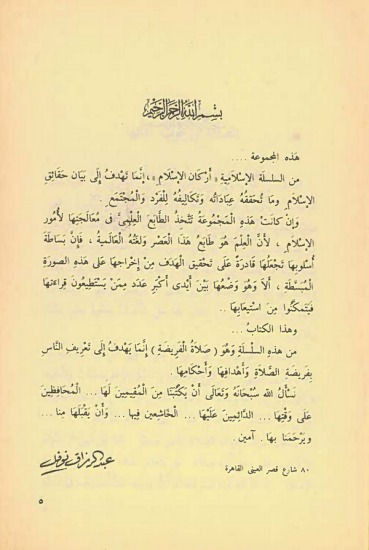 بسم الله الرحمن الرحيم
هَذه المجموعة ....
من السلسلة الإسلامية « أركان الإسلام » ، إنَّمَا تَهْدفُ إلَى بَيَان حَقَائق
الإسلام وما تُحققُهُ عبَادَاتُه وتَكَاليفُهُ للْفَرْد وَالْمُجْتَمَعِ .
وَإنْ كانَتْ هَذه الْمَجْمُوعَةُ تَتَّخذُ الطَّابَعَ الْعلْمىَّ فى مُعَالَجَتهَا لأُمُور
الإسلام ، لأَنَّ الْعلْمَ هُوَ طَابَعُ هَذَا الْعَصْر ولغَتُهُ الْعَالَميةُ ، فَإنَّ بَسَاطَةَ
أُسْلُوبهَا تَجْعَلُهَا قَادرَةً عَلَى تَحْقيق الْهَدَف منْ إخْرَاجهَا عَلَى هَذه الصورَة
الْمُبَسَّطَة ، أَلاَ وَهُوَ وَضْعُهَا بَيْنَ أَيْدى أَكْبَر عَدَد ممَّنْ يَسْتَطيعُونَ قرَاءتهَا
فَيَتَمكَّنُوا منَ اسْتيعَابهَا ..
وهذا الكتابُ ...
من هذه السلْسلَة وَهُوَ ( صَلاَةُ الْفَريضَة ) إنَّمَا يَهْدفُ إلَى تَعْريف النَّاس
بفَريضَة الصَّلاَة وَأَهْدَافهَا وَأَحْكَامهَا .
نَسْأَلُ الله سُبْحَانَهُ وَتَعَالَى أَنْ يَكْتُبَنَا منَ الْمُقيمينَ لَهَا ... الْمُحَافظينَ
عَلَى وَقْتهَا ... الدَّائمينَ عَلَيْهَا ... الْخَاشعينَ فيهَا ... وَأَنْ يَقْبَلَهَا منا ...
ويَرْحَمَنَا بهَا . آمين .
عبد الرزاق نوفل
٨٠ شارع قصر العينى القاهرة
٥